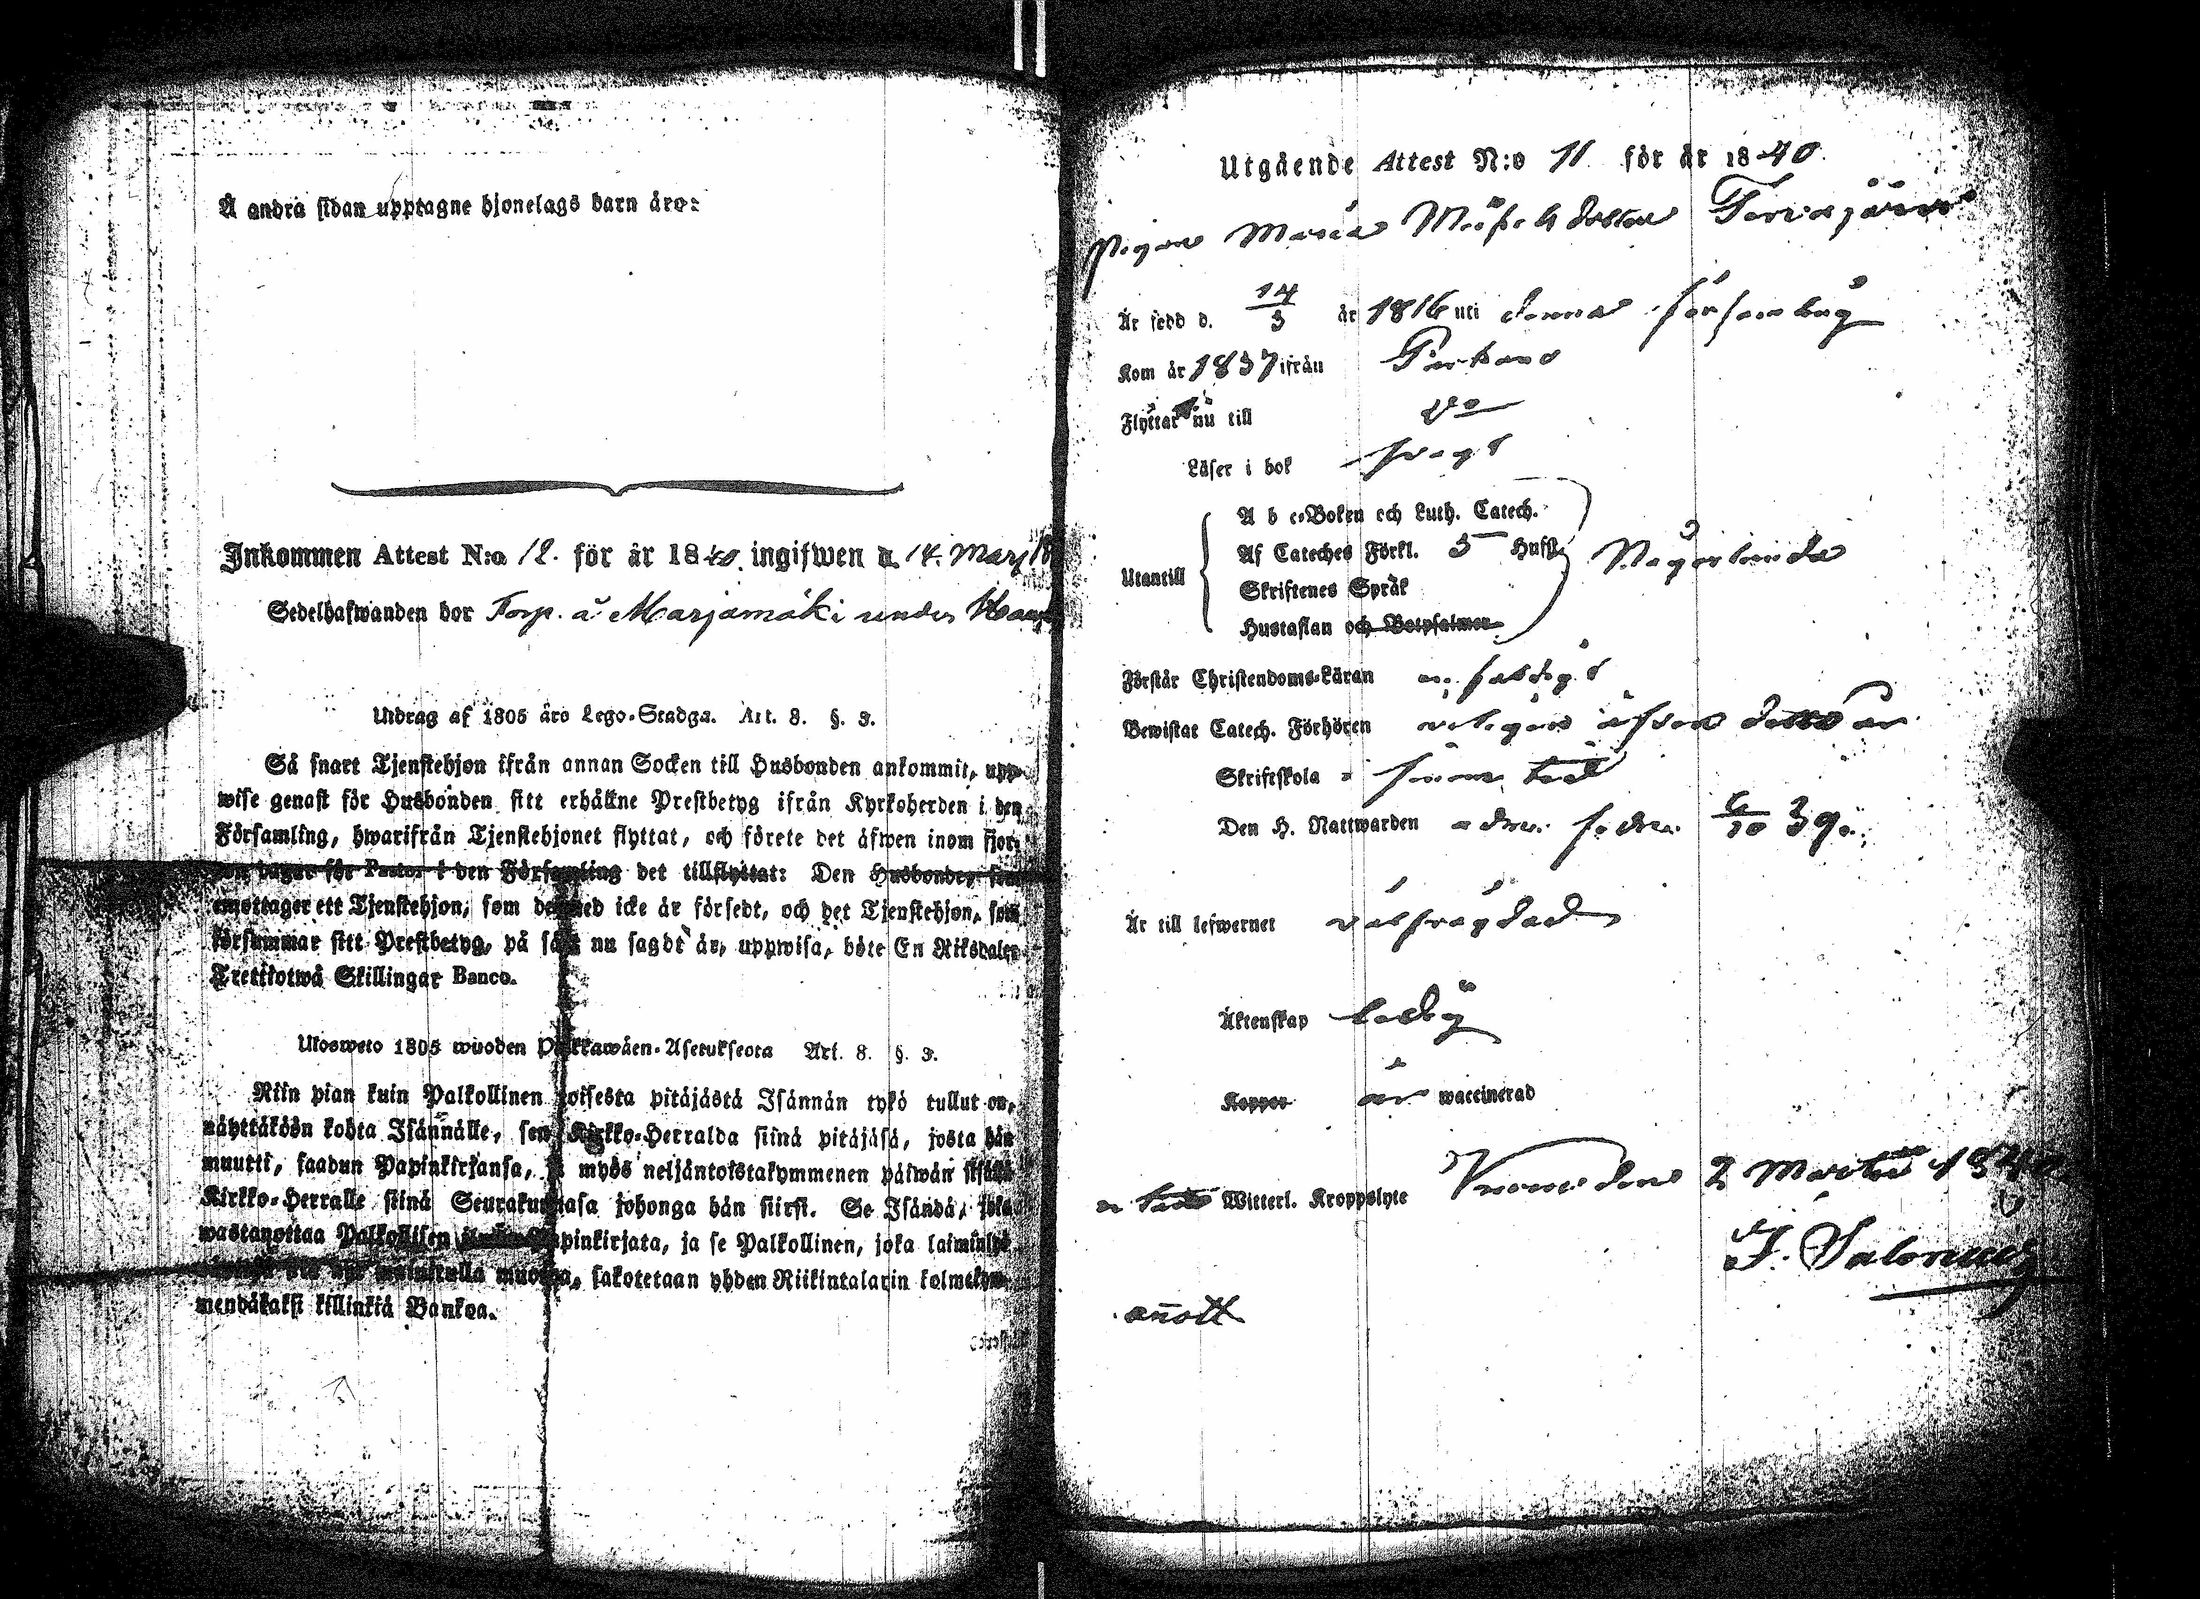 Å andra sidan upptagne hjonelags barn äro:
Inkommen Attest N:o 12. för år 1840 ingifwen d. 14. Marz 18
Sedelhafwanden bor Torp. å Marjamäki under
Utdrag af 1805 års Lego-Stadga. Art. 8. §. 3.
Så snart Tjenstehjon ifrån annan Socken till Husbonden ankommit, upp-
wise genast för Husbonden sitt erhållne Prestbetyg ifrån Kyrkoherden i den
Församling, hwarifrån Tjenstehjonet flyttat, och förete det äfwen inom fjor-
ton dagar för Pastor i den Församling det tillflyttat: Den Husbonde, som
emottager ett Tjenstehjon, som dermed icke är försedt, och det Tjenstehjon, som
försummar sitt Prestbetyg, på sätt nu sagdt är, uppwisa, böte En Riksdaler
Trettiotwå Skillingar Banco.
Ulosweto 1805 wuoden Palkkawäen-Asetuksesta Art. 8. §. 3.
Niin pian kuin Palkollinen toisesta pitäjästä Isännän tykö tullut on,
näyttäköön kohta Isännälle, sen Kirkko-Herralda siinä pitäjäsä, josta hän
muutti, saadun Papinkirjansa, ja myös neljäntoistakymmenen päiwän sisällä
Kirkko-Herralle siinä Seurakunnasa johonga hän siirsi. Se Isändä, joka
wastanottaa Palkollisen ilman Papinkirjata, ja se Palkollinen, joka laiminlyö
muotoa, sakotetaan yhden Riikintalarin kolmekym-
mendäkaksi killinkiä Bankoa.
Utgående Attest N:o 11 för år 1840.
Pigan Maria Torvajärvi
Är född d. 14/3 år 1816 uti denna församling
Kom år 1837 ifrån
Flyttar nu till do
Läser i bok svagt
A b c-Boken och Luth. Catech.
Af Cateches Förkl. 5 Hufst. Någorlunda
Utantill
Skriftenes Språk
Hustaflan och Botpsalmer
Förstår Christendoms-Läran enfaldigt
Bewistat Catech. Förhören äfven detta år
Skriftskola i sinom tid
Den H. Nattwarden sedan 6/10 39.
Är till lefwernet välfrägdad
Äktenskap ledig
Koppor är waccinerad
Witterl. Kroppslyte den 2 Martii 1840
J. Salonius
anott